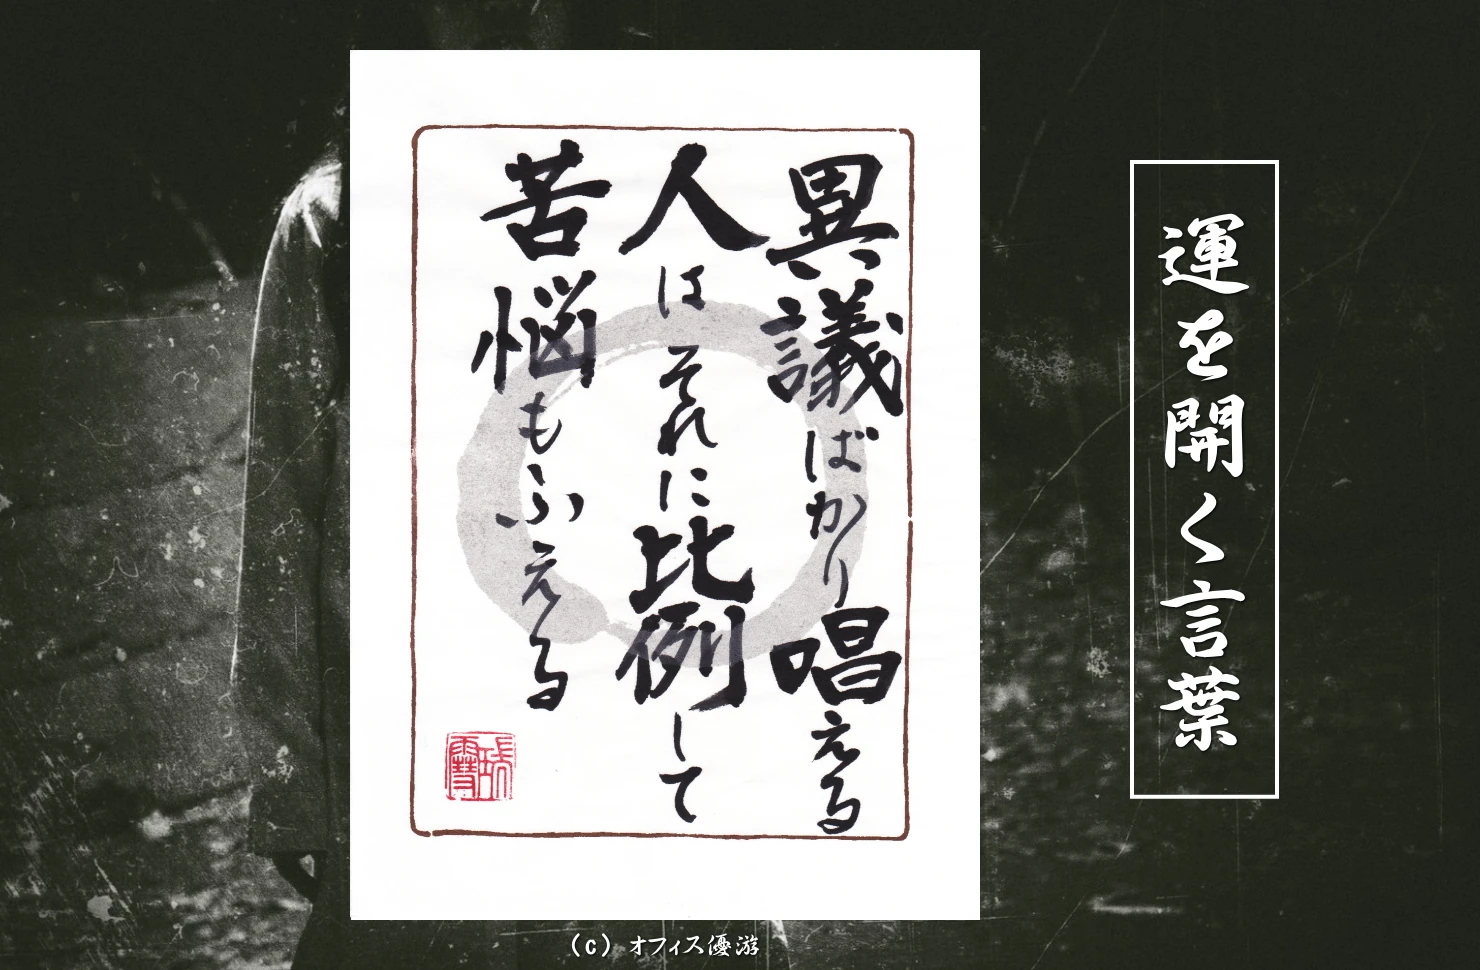 運を開く言葉
異議ばかり唱える
人はそれに比例して
苦悩もふえる
(c) オフィス優游